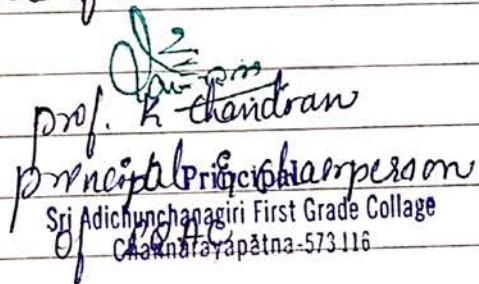 prof. K chandran
principal & chaerperson
Principal
Sri Adichunchanagiri First Grade Collage
Of IQAC
Channarayapatna-573 116